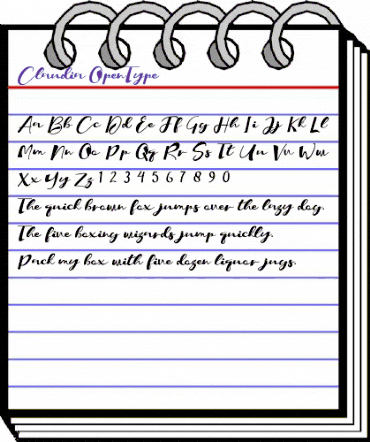 Claudia OpenType
Aa Bb Cc Dd Ee Ff Gg Hh Ii Jj Kk Ll
Mm Nn Oo Pp Qq Rr Ss Tt Uu Vv Ww
Xx Yy Zz 1 2 3 4 5 6 7 8 9 0
The quick brown fox jumps over the lazy dog.
The five boxing wizards jump quickly.
Pack my box with five dozen liquor jugs.